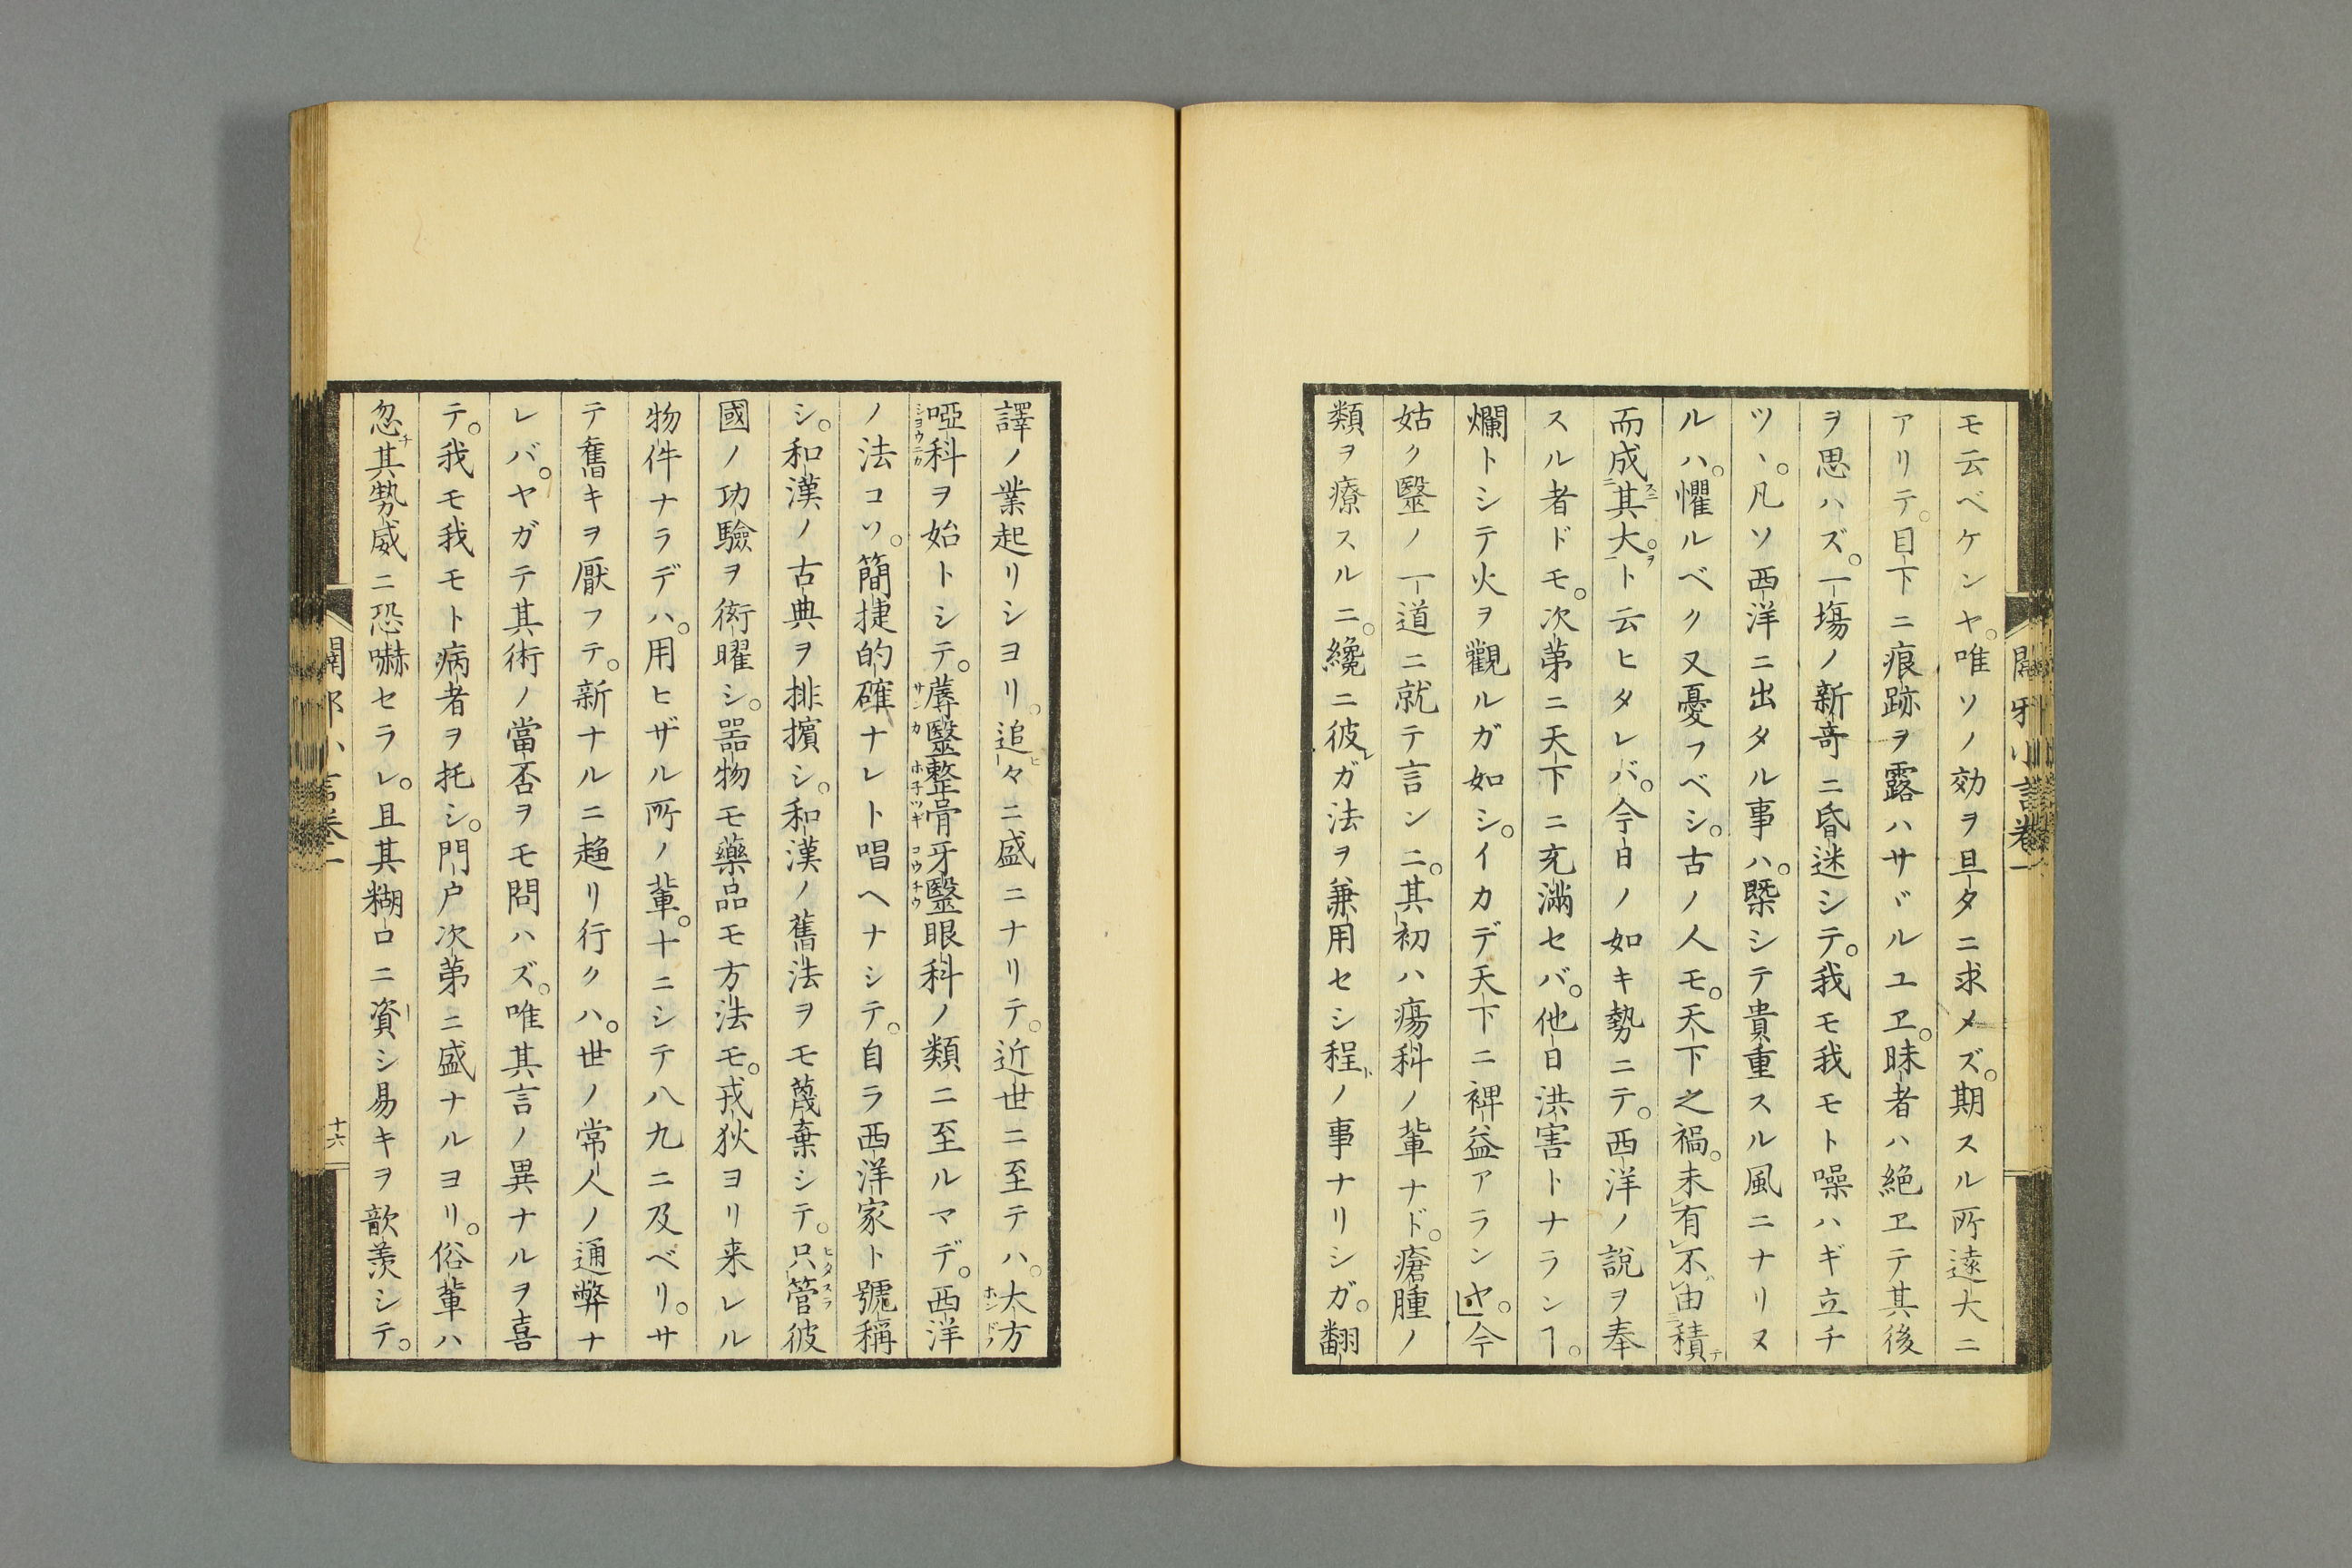 モ云ベケンヤ。唯ソノ効ヲ旦タニ求メズ。期スル所遠大ニ
アリテ。目下ニ痕跡ヲ露ハサヾルユヱ。昧者ハ絶ヱテ其後
ヲ思ハズ。一塲ノ新竒ニ昏迷シテ。我モ我モト噪ハギ立チ
ツヽ。凡ソ西洋ニ出タル事ハ。槩シテ貴重スル風ニナリヌ
ルハ。懼ルベク又憂フベシ。古ノ人モ。天下之禍。未有不由積
而成其大。ト云ヒタレバ。今日ノ如キ勢ニテ。西洋ノ說ヲ奉
スル者ドモ。次第ニ天下ニ充滿セバ。他日洪害トナランヿ。
爛トシテ火ヲ觀ルガ如シ。イカデ天下ニ裨益アランヤ。今
姑ク毉ノ一道ニ就テ言ンニ。其初ハ瘍科ノ輩ナド。瘡腫ノ
類ヲ療スルニ。纔ニ彼レガ法ヲ兼用セシ程ドノ事ナリシガ。翻
譯ノ業起リシヨリ。追ヒ々ニ盛ニナリテ。近世ニ至テハ。大方
啞科ヲ始トシテ。蓐毉整骨牙毉眼科ノ類ニ至ルマデ。西洋
ノ法コソ。簡捷的確ナレト唱ヘナシテ。自ラ西洋家ト號稱
シ。和漢ノ古典ヲ排擯シ。和漢ノ舊法ヲモ蔑棄シテ。只管彼
國ノ功驗ヲ衒曜シ。器物モ藥品モ方法モ。戎狄ヨリ来レル
物件ナラデハ。用ヒザル所ノ輩。十ニシテ八九ニ及ベリ。サ
テ舊キヲ厭フテ。新ナルニ趨リ行クハ。世ノ常人ノ通弊ナ
レバ。ヤガテ其術ノ當否ヲモ問ハズ。唯其言ノ異ナルヲ喜
テ。我モ我モト病者ヲ托シ。門戸次第ニ盛ナルヨリ。俗輩ハ
忽チ其勢威ニ恐嚇セラレ。且其糊口ニ資シ易キヲ歆羨シテ。
十六